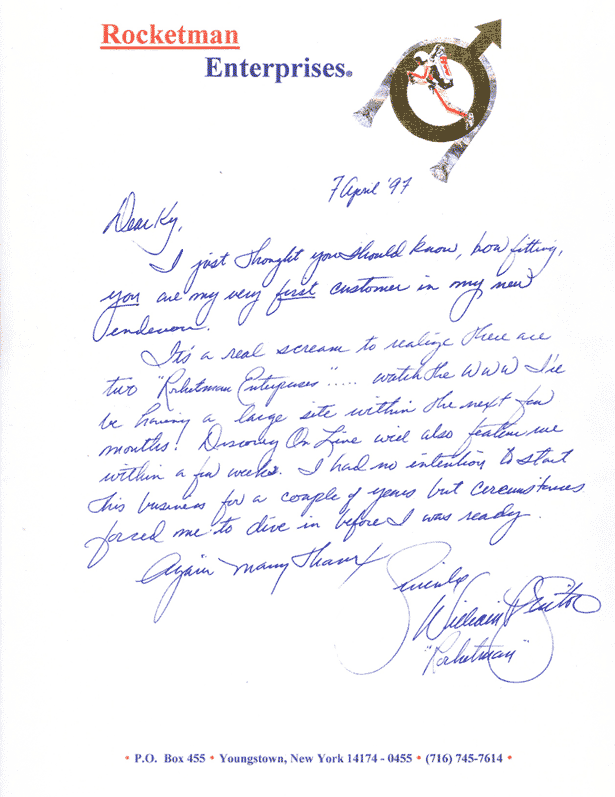 Rocketman
Enterprises®
7 April '97
Dear Ky,
I just thought you should know, how fitting,
you are my very first customer in my new
endevor.
It's a real scream to realize there are
two "Rocketman Enterprises"..... watch the WWW I'll
be having a large site within the next few
months! Discovery On Line will also feature me
within a few weeks. I had no intention to start
this business for a couple of years but circumstances
forced me to dive in before I was ready.
Again many thanx
Sincerely
William
"Rocketman"
• P.O. Box 455 • Youngstown, New York 14174 - 0455 • (716) 745-7614 •